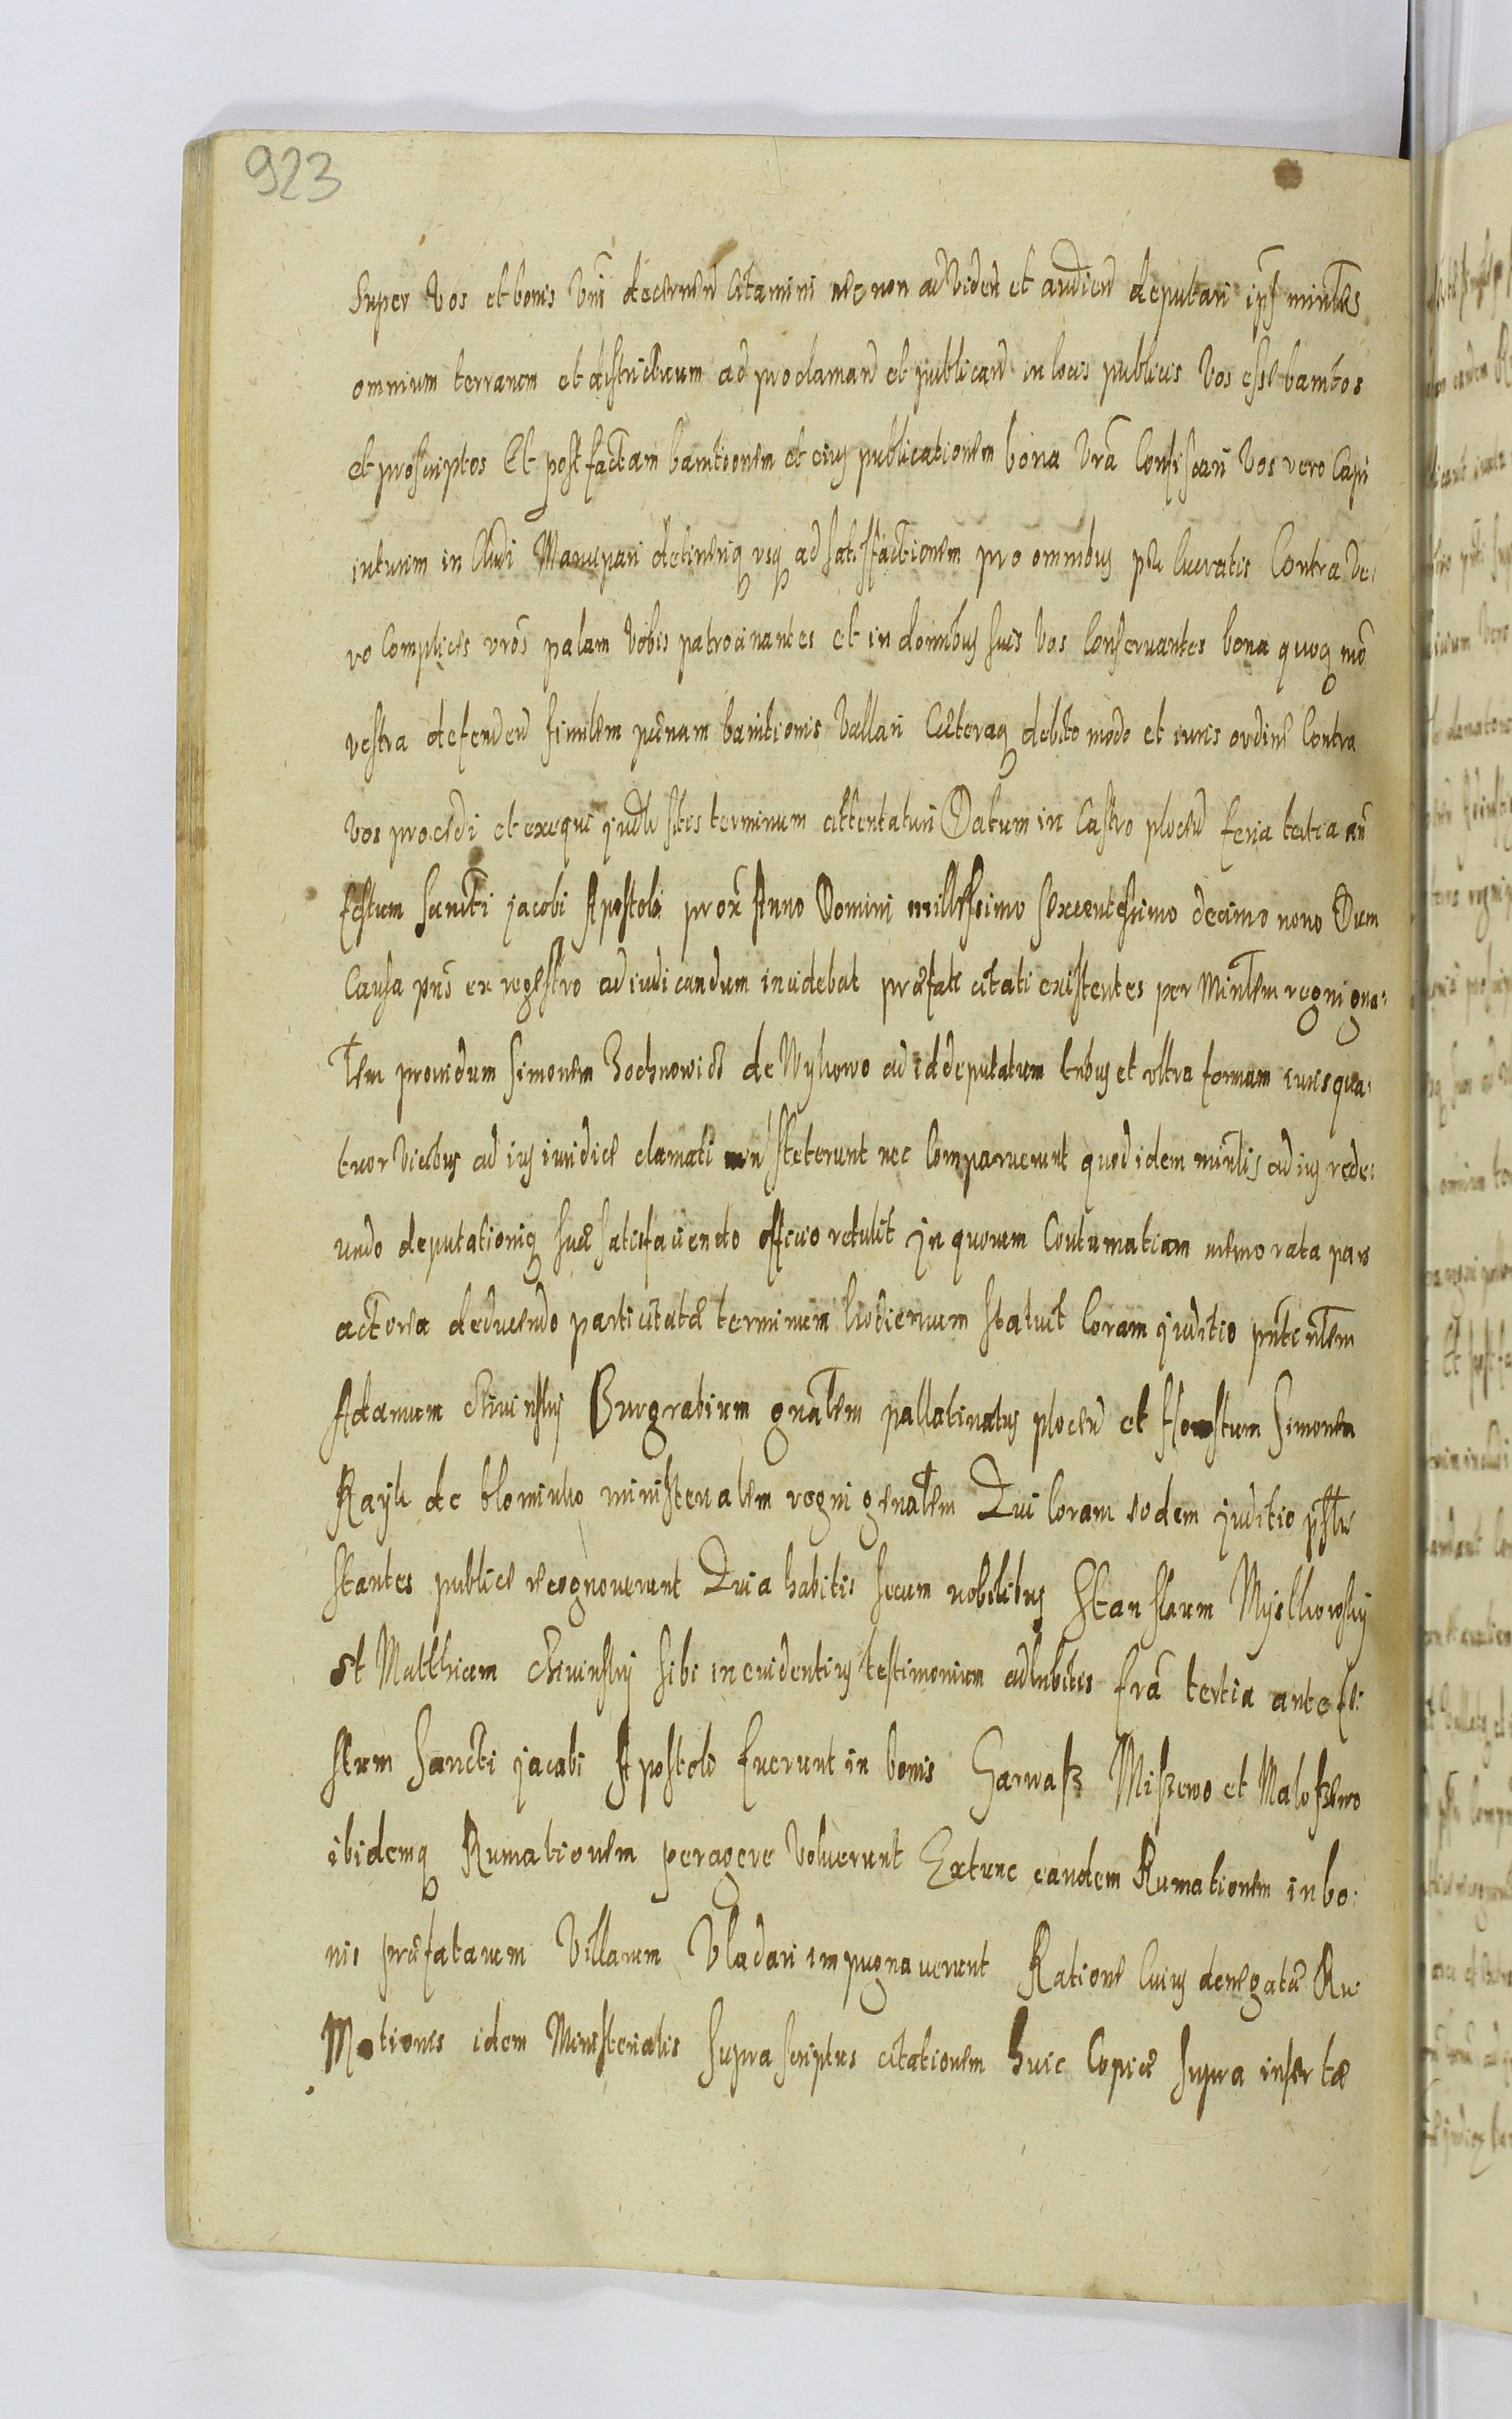 923
super Vos et bonis Vris decernen Citamini nec non ad Viden et audien deputari ips minles
omnium terrarum et districtuum ad proclamand et publicand in locis publicis Vos esse banitos
et proscriptos Et post factam banitionem et eius publicationem bona Vra Confiscari Vos vero Capi
in turim in cludi Mancipari detineriq usq ad satisfactionem pro omnibus per lucratis Contra ve:
ro Complices vros palam Vobis patrocinantes et in domibus suis Vos Conservantes bona quoq mo
vestra defenden similem pænam banitionis Vallari Cæteraq debito modo et iuris ordine Contra
Vos procedi et exequi Judle sitis terminum attentaturi Datum in Castro plocen feria tertia an
festum Sancti Jacobi Apostoli prox Anno Domini millesimo sexcentesimo decimo nono Dum
Causa pns ex regestro ad iudicandum incidebat præfati citati existentes per Minlem regni gna:
lem providum Simonem Zochnowicz de Wykowo ad id deputatum tribus et ultra formam iuris qua:
tuor Vicibus ad ius iuridice clamati non steterunt nec Comparuerunt quod idem minlis ad ius rede:
undo deputationiq suæ satisfaciendo officio retulit In quorum Contumatiam memorata pars
actorea deducendo parti citatæ terminum hodiernum statuit Coram Juditio pntentem
Adamum Burgrabium gnalem pallatinatus plocen et Honestum Simonem
Rayk de blominko ministerialem regni genalem Qui Coram eodem Juditio pstr
stantes publice recognoverunt Quia habitis secum nobilibus Stanslaum Myslkowsky
et Matthiam sibi in evidentius testimonium adhibitis fra tertia ante fe:
stum Sancti Jacobi Apostoli fuerunt in bonis Garwasz Miszewo et Maloszewo
ibidemq Rumationem peragere Voluerunt Extunc eandem Rumationem in bo:
nis præfatarum Villarum Vladari impugnaverunt Ratione Cuius denegatæ Ru:
Mationis idem Ministerialis supra scriptus citationem huic Copiæ supra insertæ